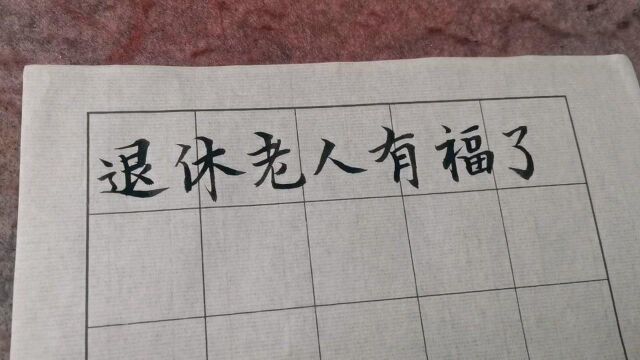 退休老人有福了